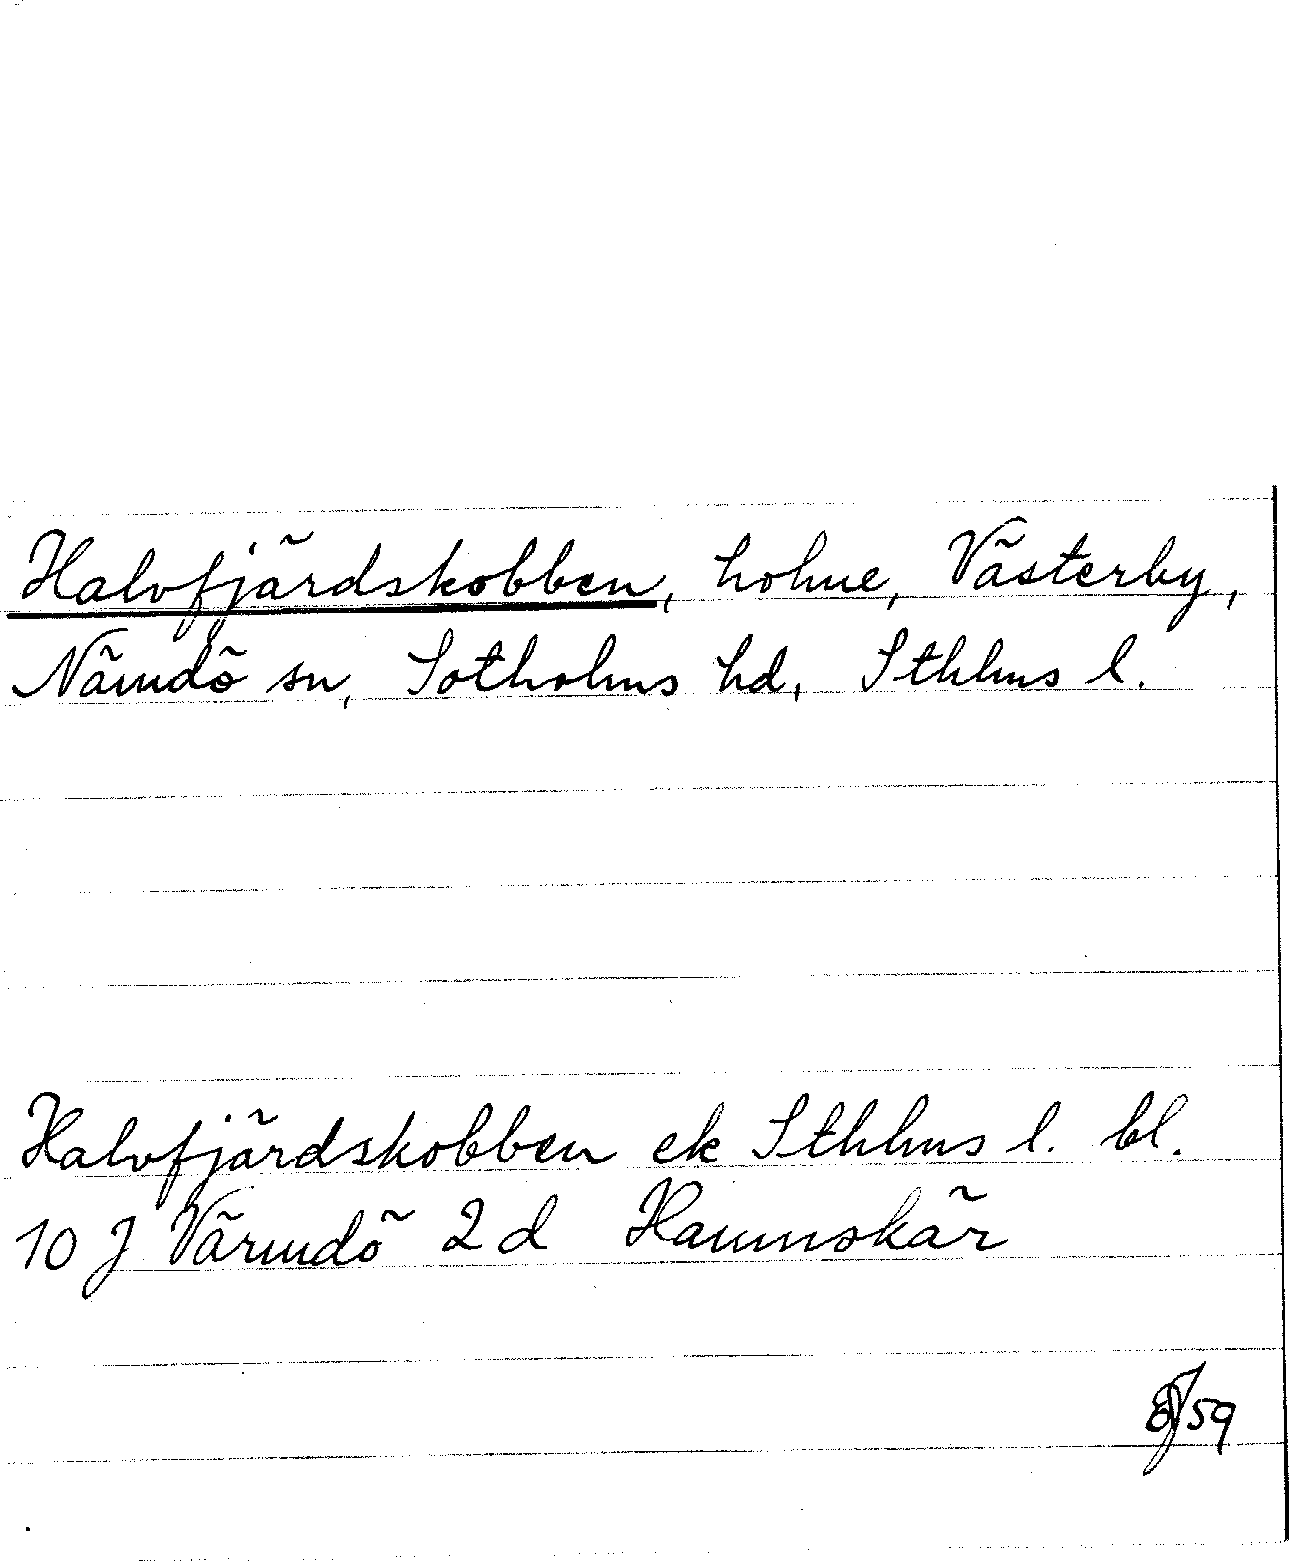 Halvfjärdskobben, holme, Västerby,
Nämdö sn, Sotholms hd, Sthlms l.
Halvfjärdskobben ek Sthlms l. bl.
10 J Värmdö 2 d Hamnskär
59